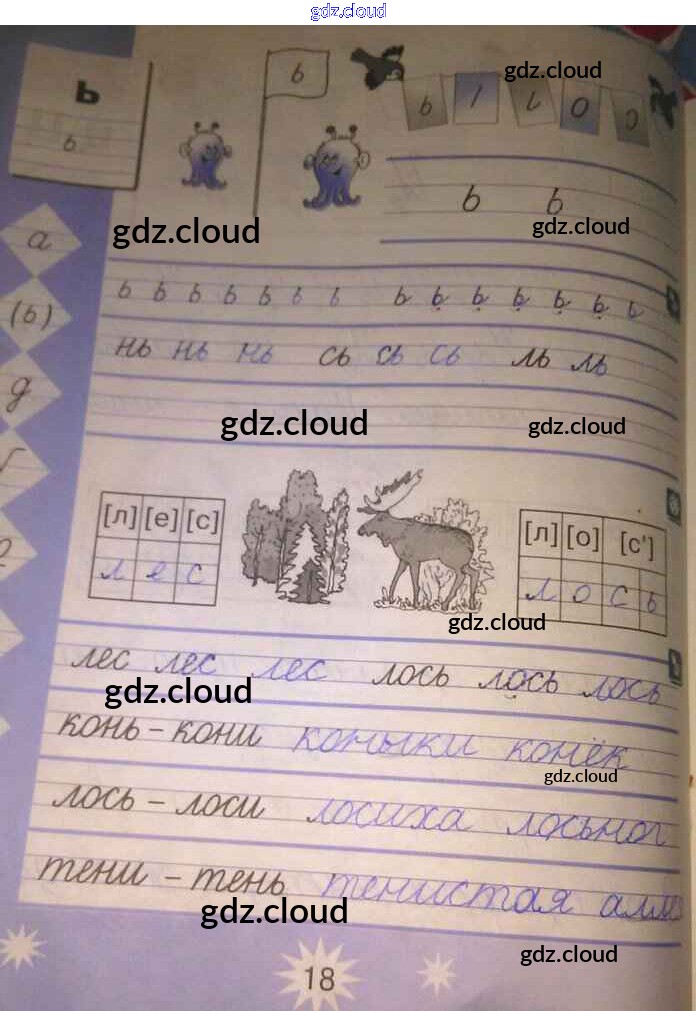 gdz.cloud
ь
ь
ь
ь ı ɩ о
gdz.cloud
ь ь
gdz.cloud
gdz.cloud
а
(ь)
ь ь ь ь ь ь ь ь ь ь ь ь ь ь
нь нь нь сь сь сь ль ль
д
gdz.cloud
gdz.cloud
[л] [е] [с]
л е с
[л] [о] [с']
л о с ь
gdz.cloud
лес лес лес лось лось лось
gdz.cloud
конь – кони коньки конёк
gdz.cloud
лось – лоси лосиха
тени – тень тенистая
gdz.cloud
gdz.cloud
18